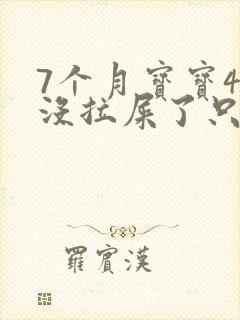 7个月寶寶4
沒拉屎了只
羅賓漢